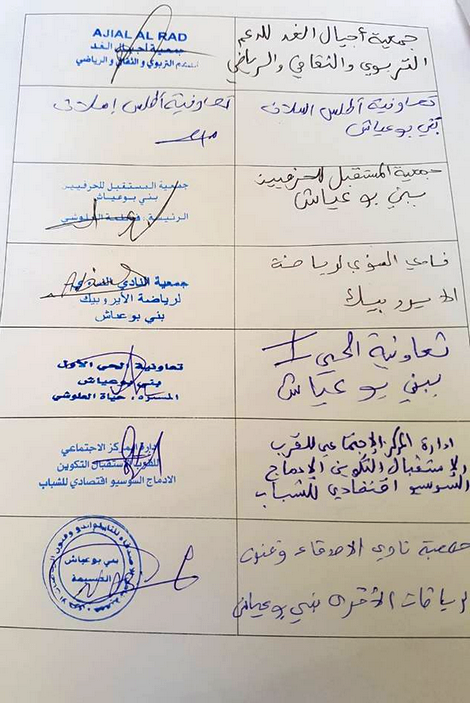 جمعية أجيال الغد للدعم
التربوي والثقافي والرياضي
AJIAL AL RAD
جمعية أجيال الغد
للدعم التربوي والثقافي والرياضي
تعاونية أطلس
بني بوعياش
تعاونية أطلس
جمعية المستقبل للحرفيين
ببني بوعياش
جمعية المستقبل للحرفيين
بني بوعياش
الرئيسة: فاطمة العلوشي
نادي النسوي لرياضة
الايروبيك
جمعية النادي النسوي
لرياضة الأيروبيك
بني بوعياش
تعاونية الحي I
ببني بوعياش
تعاونية الحي الأول
بني بوعياش
المسيرة: حياة العلوشي
ادارة المركز الاجتماعي للقرب
لاستقبال التكوين الإدماج
السوسيو اقتصادي للشباب
إدارة المركز الاجتماعي
للقرب لاستقبال التكوين
الادماج السوسيو اقتصادي للشباب
جمعية نادي الاصدقاء وفنون
الرياضات الأخرى بني بوعياش
بني بوعياش
الحسيمة